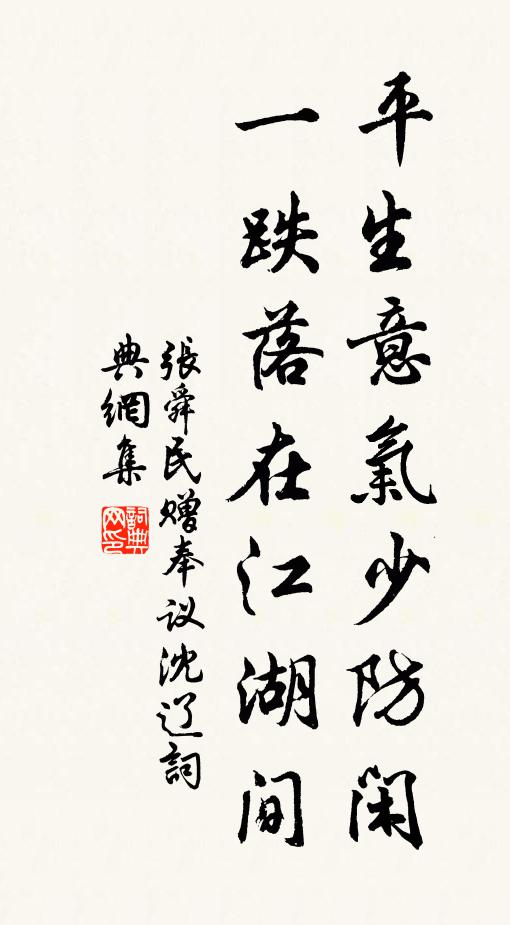 平生意氣少防閑
一跌落在江湖間
張舜民贈奉议沈辽詞
典網集
詞典
网印